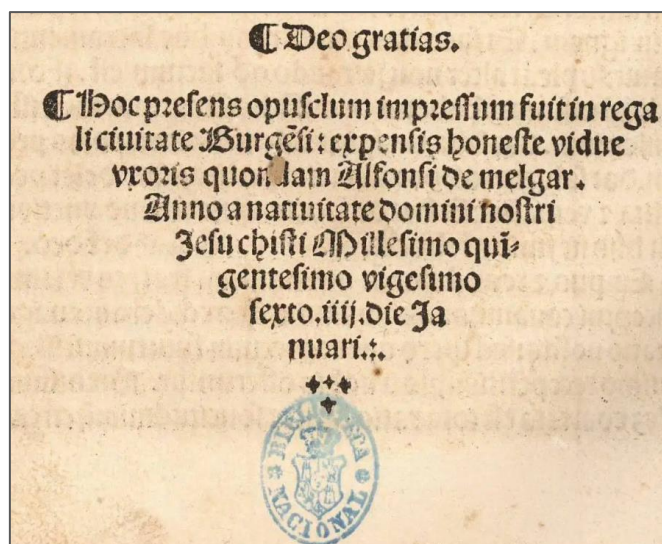 ❡ Deo gratias.
❡ Hoc presens opusclum impressum fuit in rega
li ciuitate Burgẽsi: expensis honeste vidue
vxoris quondam Alfonsi de melgar.
Anno a natiuitate domini nostri
Jesu chisti Millesimo quĩ-
gentesimo vigesimo
sexto.iiij.die Ja
nuari.:.
BIBLIOTECA NACIONAL